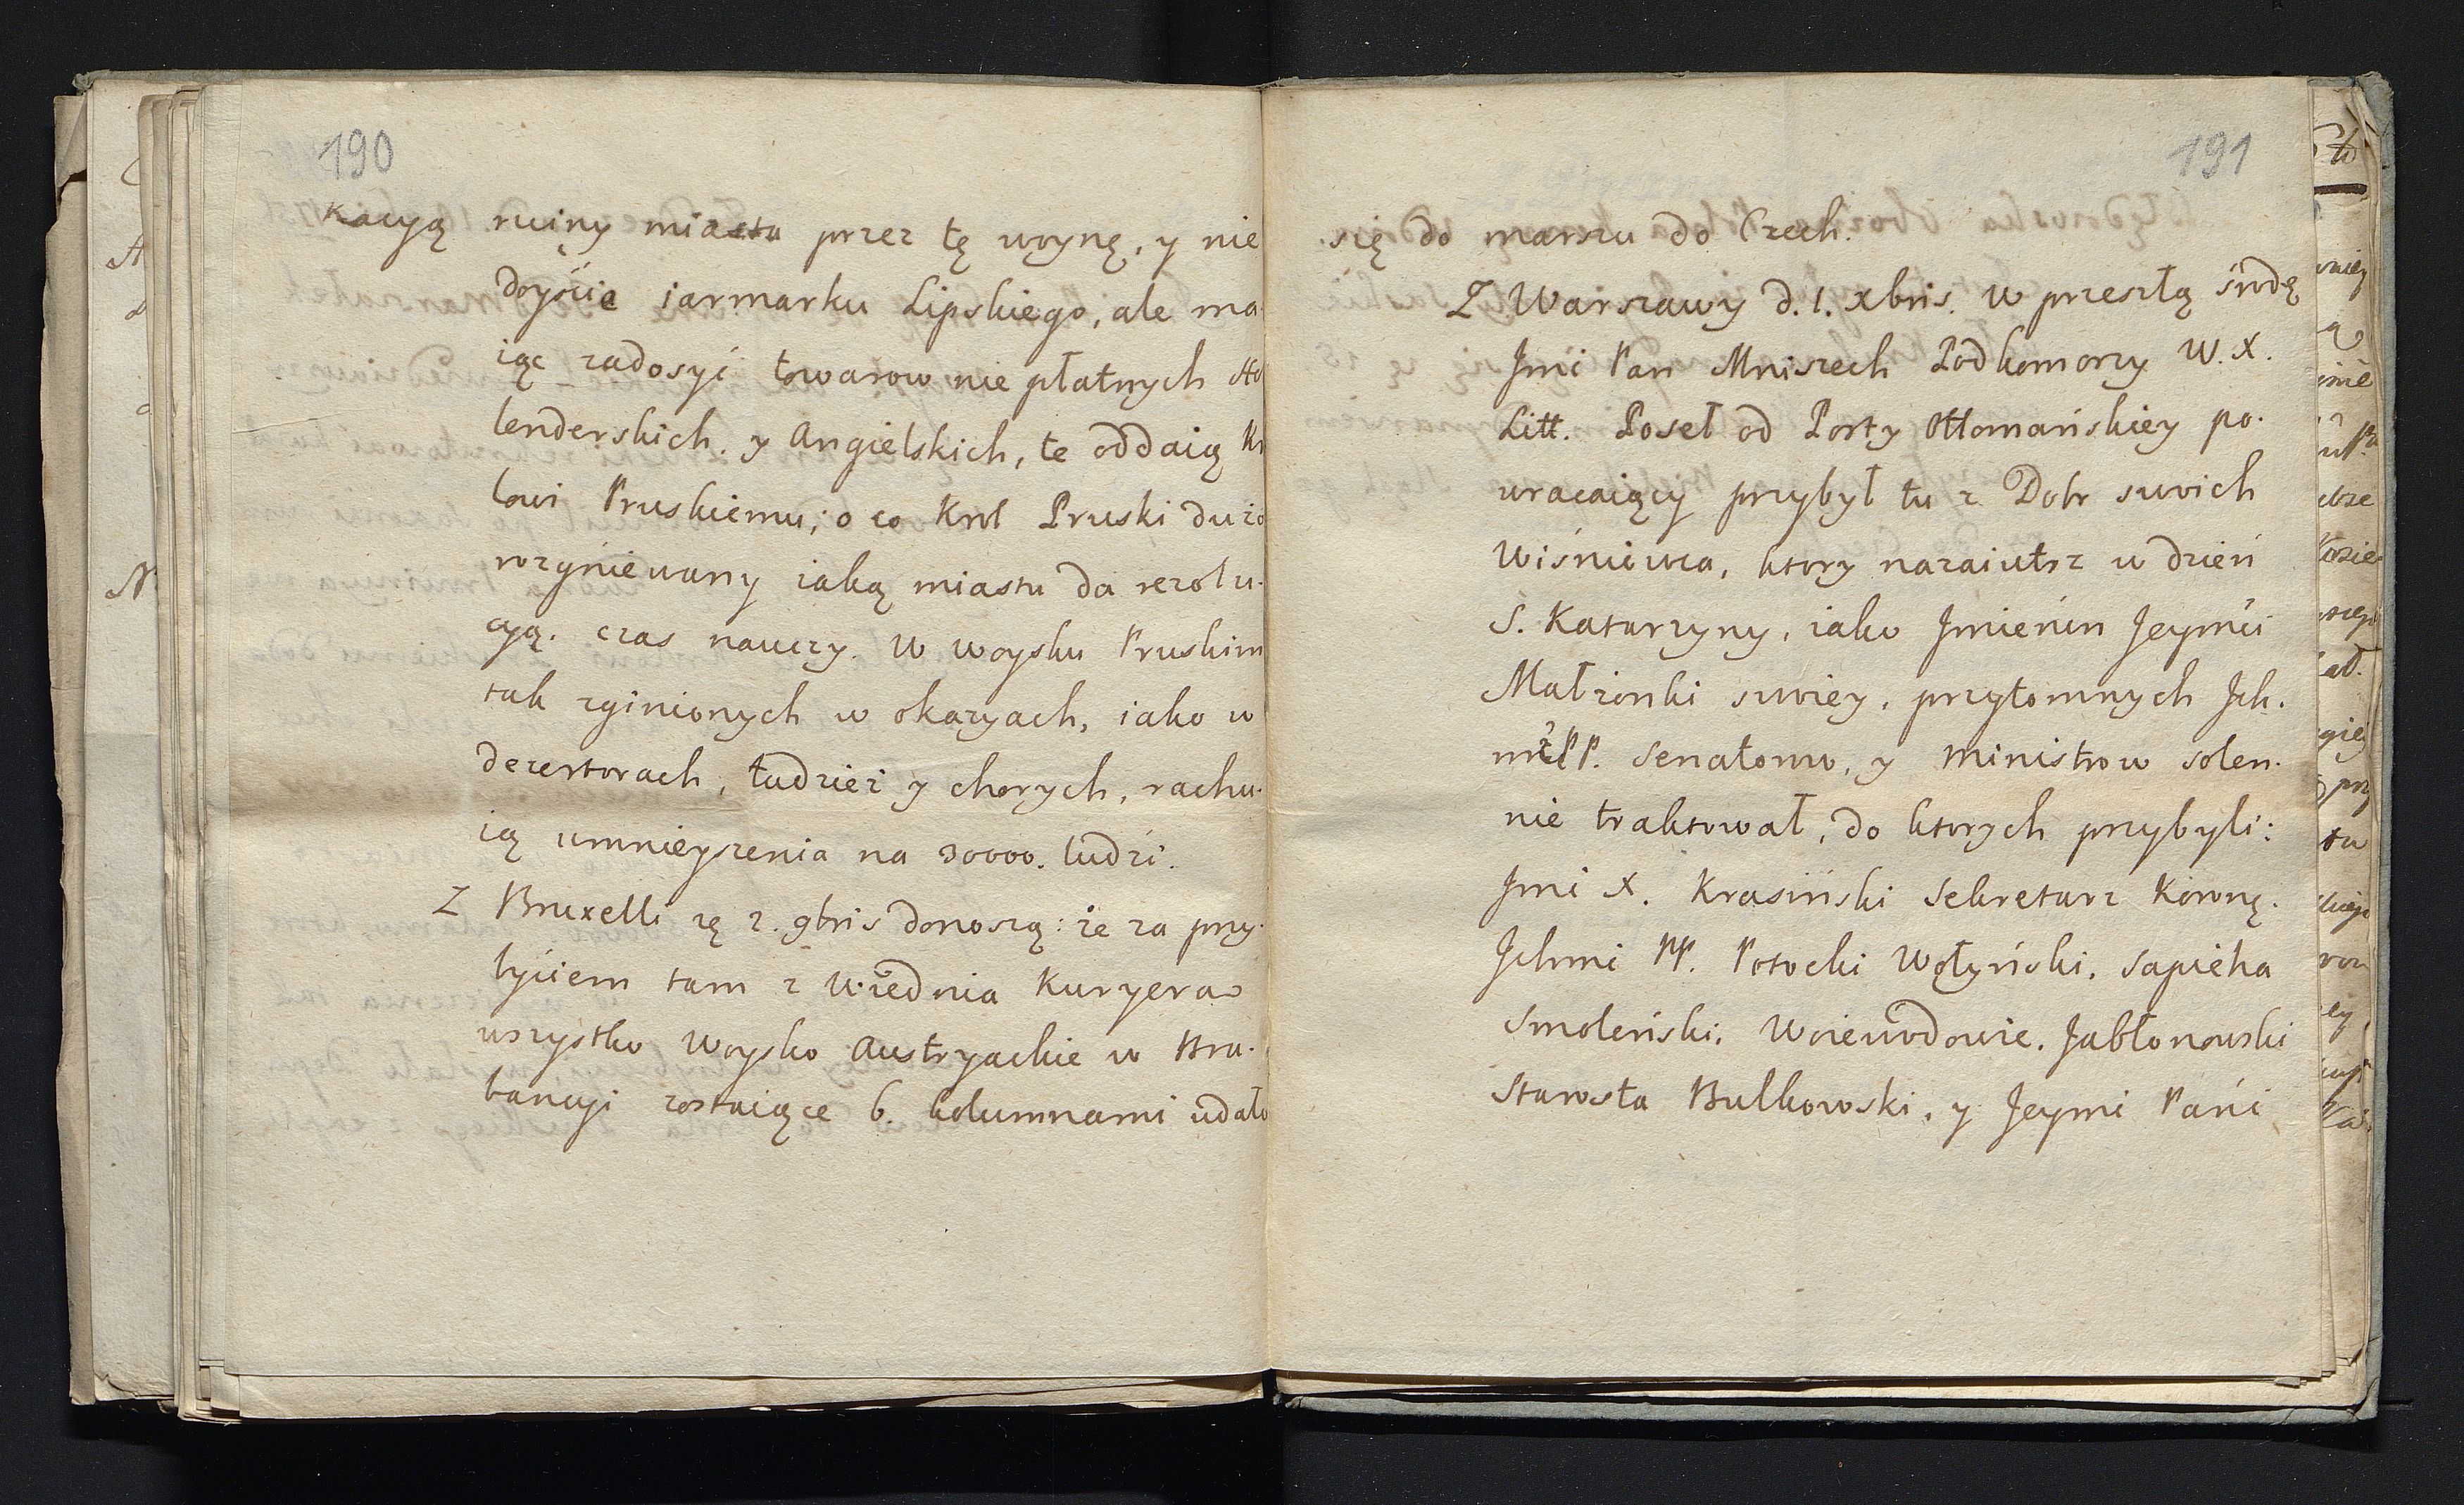 190
Kacyą ruiny miasta przez tę woynę, y nie
doyście iarmarku Lipskiego, ale ma
iąc zadosyć towarow nie płatnych Ho
lenderskich. y Angielskich, te oddaią Kr
lowi Pruskiemu; o co Krol Pruski dużo
rozgniewany iaką miastu da rezolu.
cyą. czas nauczy. W woysku Pruskim
tak zginionych w okazyach, iako w
dezertorach, tudzież y chorych, rachu.
ią umnieyszenia na 30000. ludzi.
Z Bruxelli zę 2. 9bris donoszą: że za przy.
byciem tam z Wiednia Kuryera
wszystko Woysko Austryackie w Bra.
bancyi zostaiące 6. kolumnami udało
191
się do marszu do Czech.
Z Warszawy d. 1. Xbris. W przeszłą środę
Jmć Pan Mniszech Podkomorzy W. X.
Litt. Poseł od Porty Ottomańskiey po.
wracaiący przybył tu z Dobr swoich
Wiśniowca, ktory nazaiutrz w dzień
S. Katarzyny, iako Jmienin Jeymći
Małżonki swoiey, przytomnych Jch.
mć PP. Senatorow, y Ministrow solen.
nie traktował, do ktorych przybyli:
Jmć X. Krasiński Sekretarz Koronny.
Jchmć PP. Potocki Wołyński, Sapieha
Smoleński, Woiewodowie. Jabłonowski
Starosta Bulkowski, y Jeymć Pani